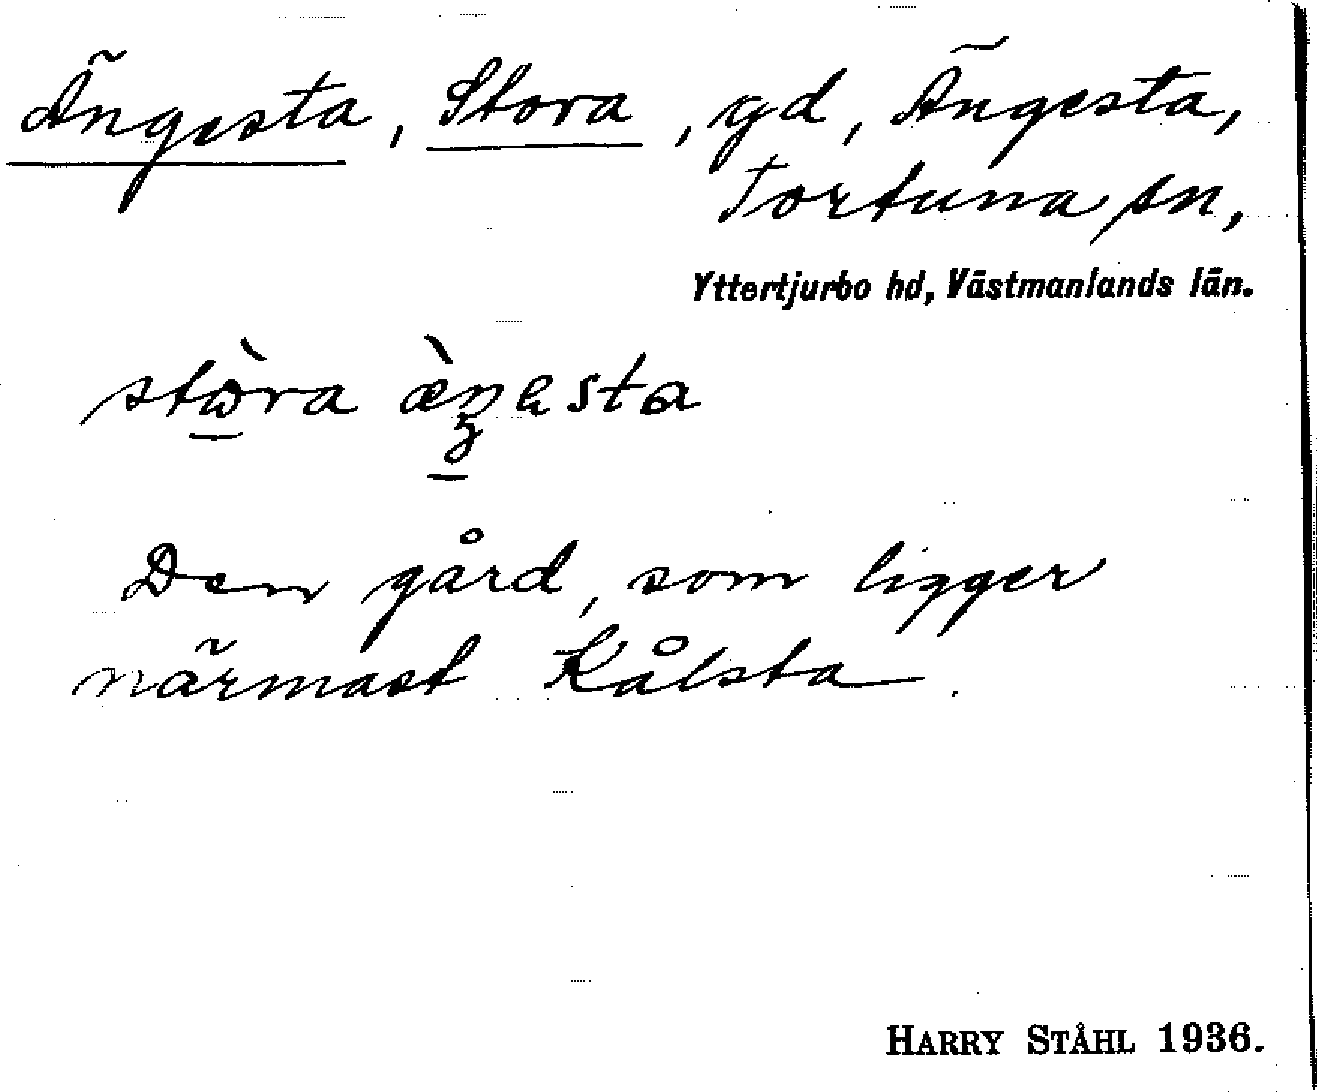 Ängesta, Stora, gd, Ängesta,
Tortuna sn,
Yttertjurbo hd, Västmanlands län.
stὼra æ̀ŋesta
Den gård, som ligger
närmast Kålsta.
HARRY STÅHL 1936.